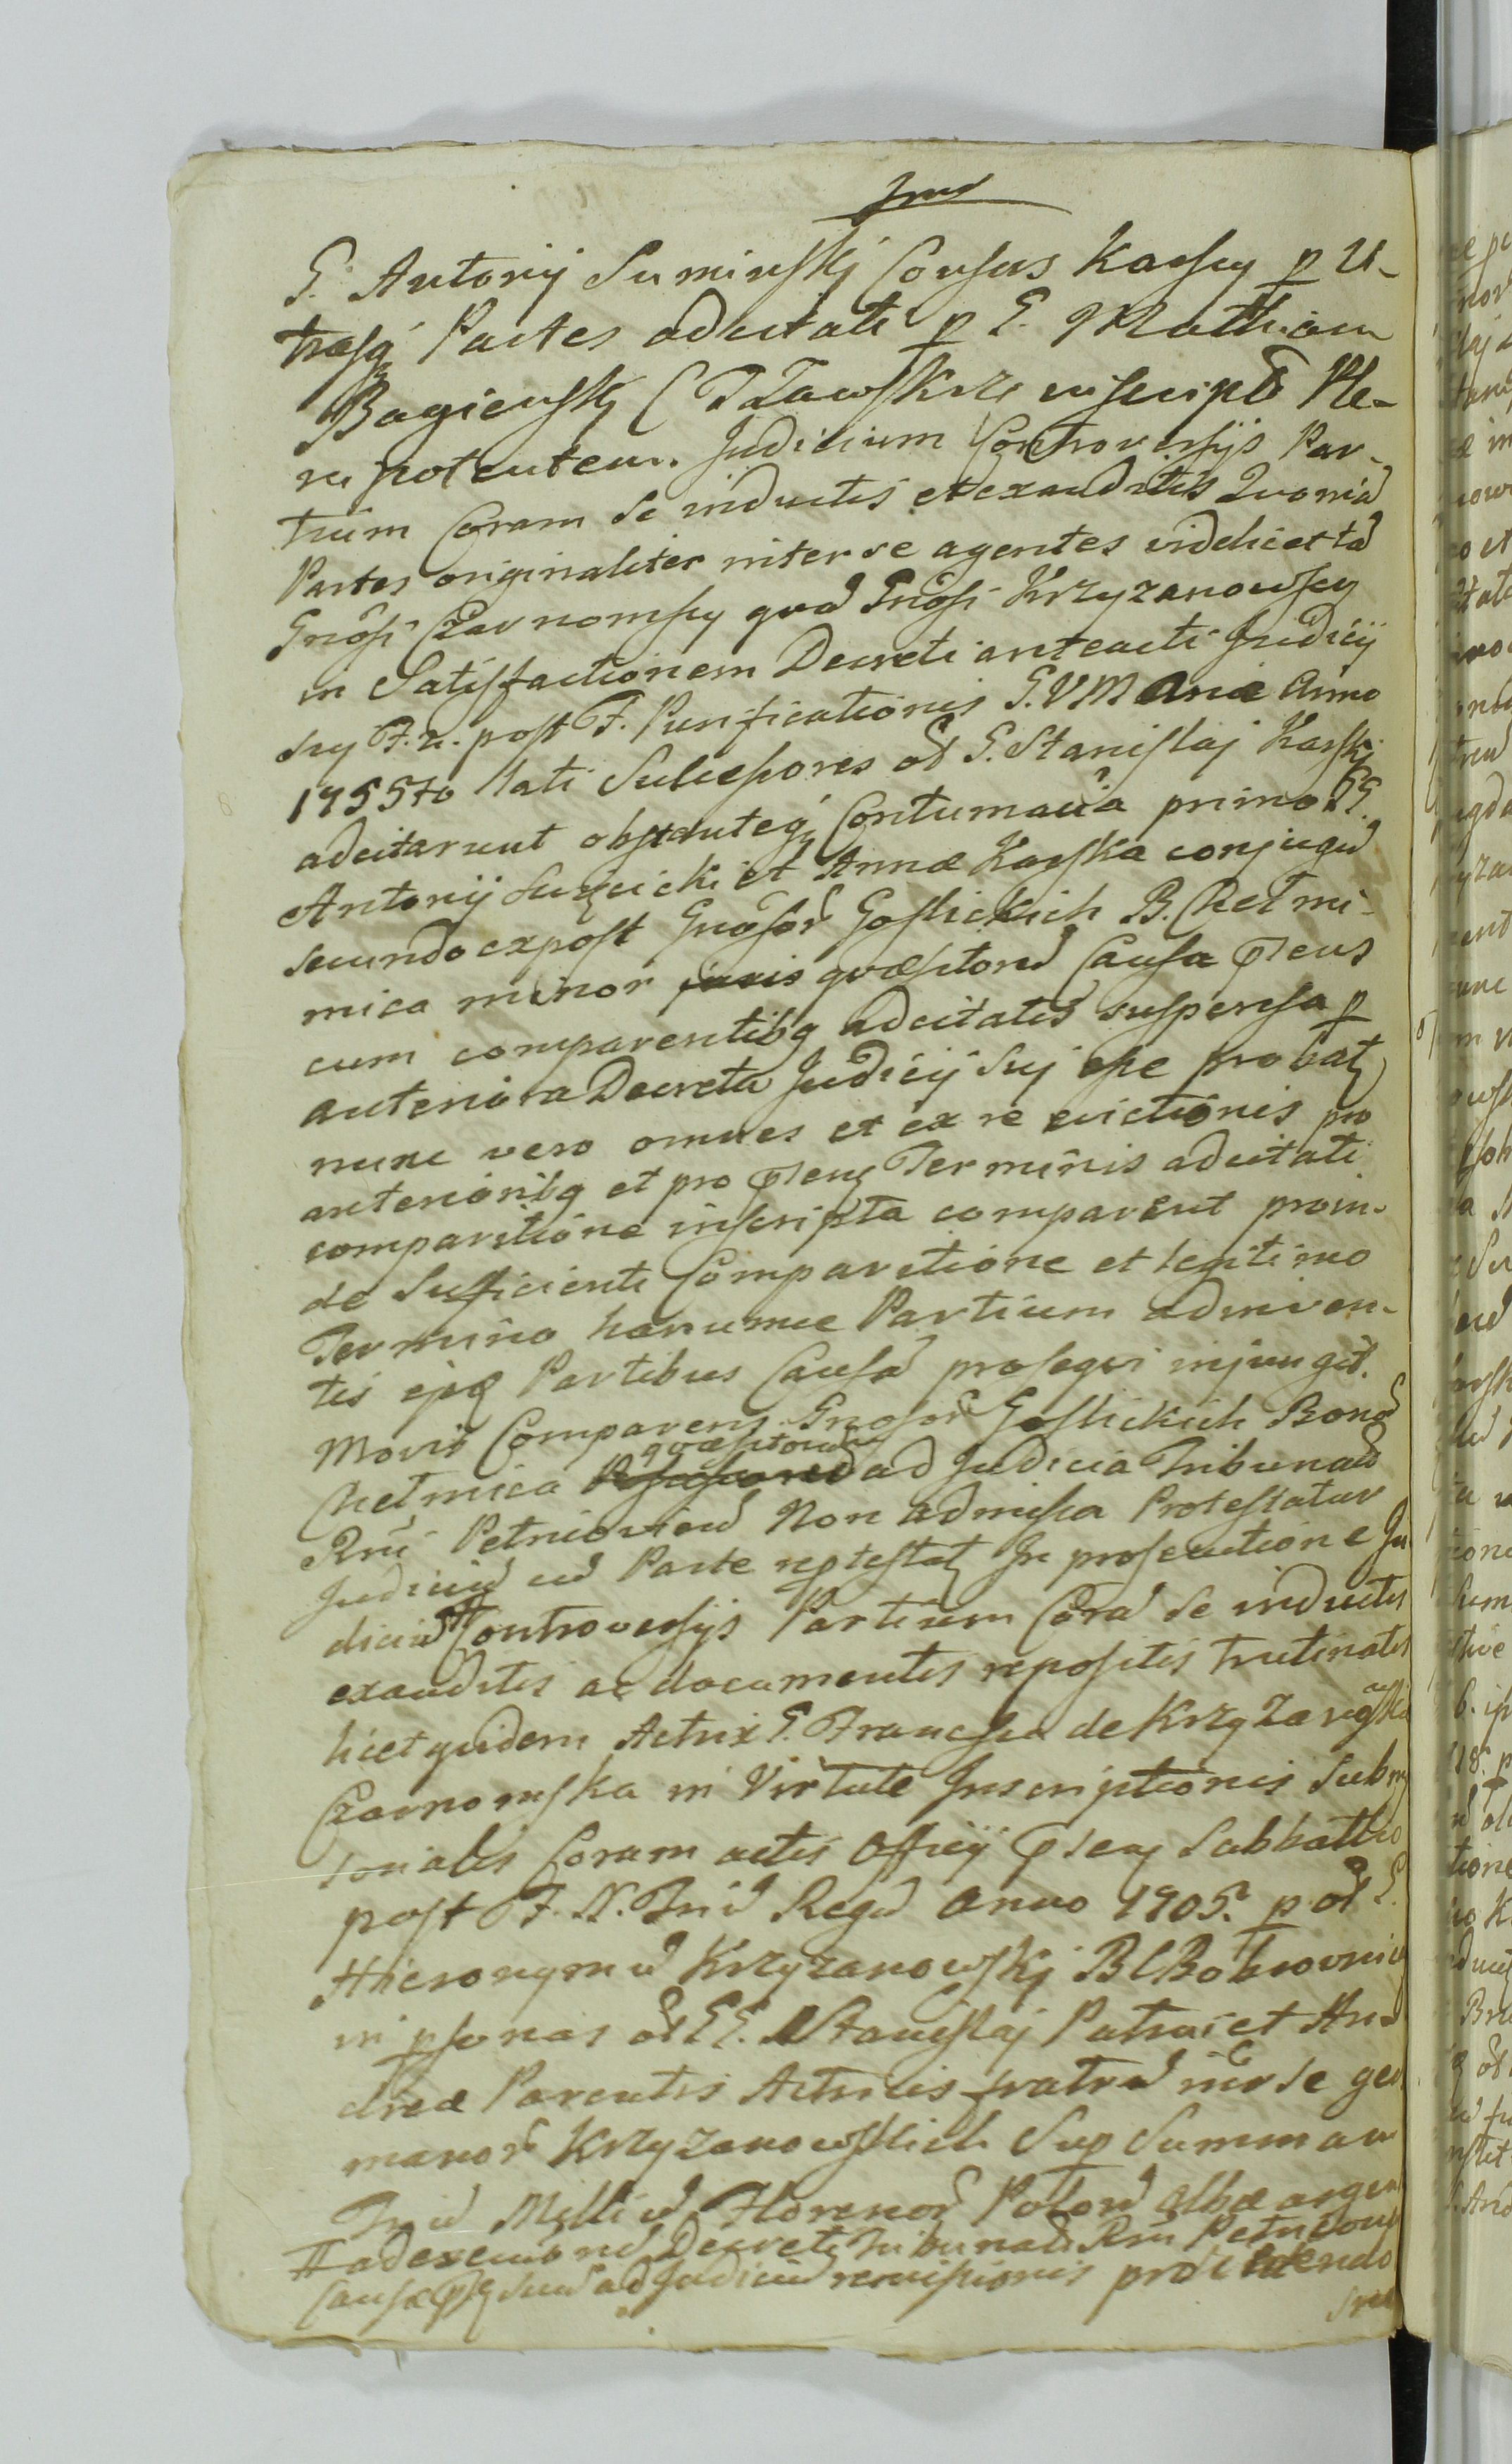 G. Antonij Suminskj Consors Karscy p U-
trasq Partes adcitati p G. Mathiam
Bagienskj C Plawskrze inscript Ple-
nipotentem. Judicium Controversijs Par-
tium Coram se inductis et exauditis Quonia
Partes originaliter inter se agentes videlicet ta
Gnosi Czarnomscy qva Gnosi Krzyzanowscy
in Satisfactionem Decreti anteacti Judicij
suy F. 2. post F. Purificationis S.V Mariæ Anno
1755to lati Successores ol G. Stanislaj Karskj
adcitarunt obstanteq Contumacia primo GG.
Antonij et Annæ Karska conjugu
secundo expost Gnosor Goslickich B. Chełmi-
mica minor qvæsitorū Causa pens
cum comparentibq adcitatis suspensa p
anteriora Decreta Judicij suj esse probat
nunc vero omnes et ex re evictionis pro
anterioribq et pro psenz Terminis adcitati
comparitione inscripta comparent proin-
de Sufficienti Comparitione et legitimo
Termino harumce Partium adinven-
tis ijsq Partibus Causa prosegvi injungit.
Movit Comparens Gnosor Goslickich Bonor
Chełmica qvæsitorū ad Judicia Tribunal
Rni Petricovien Non admissa Protestatur
Judiciū cū Parte reptestat In prosecutione Ju
diciū Controversijs Partium Cora se inductis
exauditis ac documentis repositis trutinatis
licet quidem Actrix G. Francisca de Krzyzanoskie
Czarnomska in Virtute Inscriptionis Subm
sorialis Coram actis Officij psenz Sabbattho
post F. N. Triū Regū Anno 1705. p ol G.
Hieronymū Krzyzanowskj B C Bobrownic
in psonas ol GG. Stanislaj Patrui et An-
dreæ Parentis Actricis fratrū inter se ger
manor Krzyzanowskich Sup Summam
Triū Milliū Florenor Polon albæ argen
# ad executionē Decreti Tribunal Rni Petricov
Causæ adjudiciū remissionis procedendo